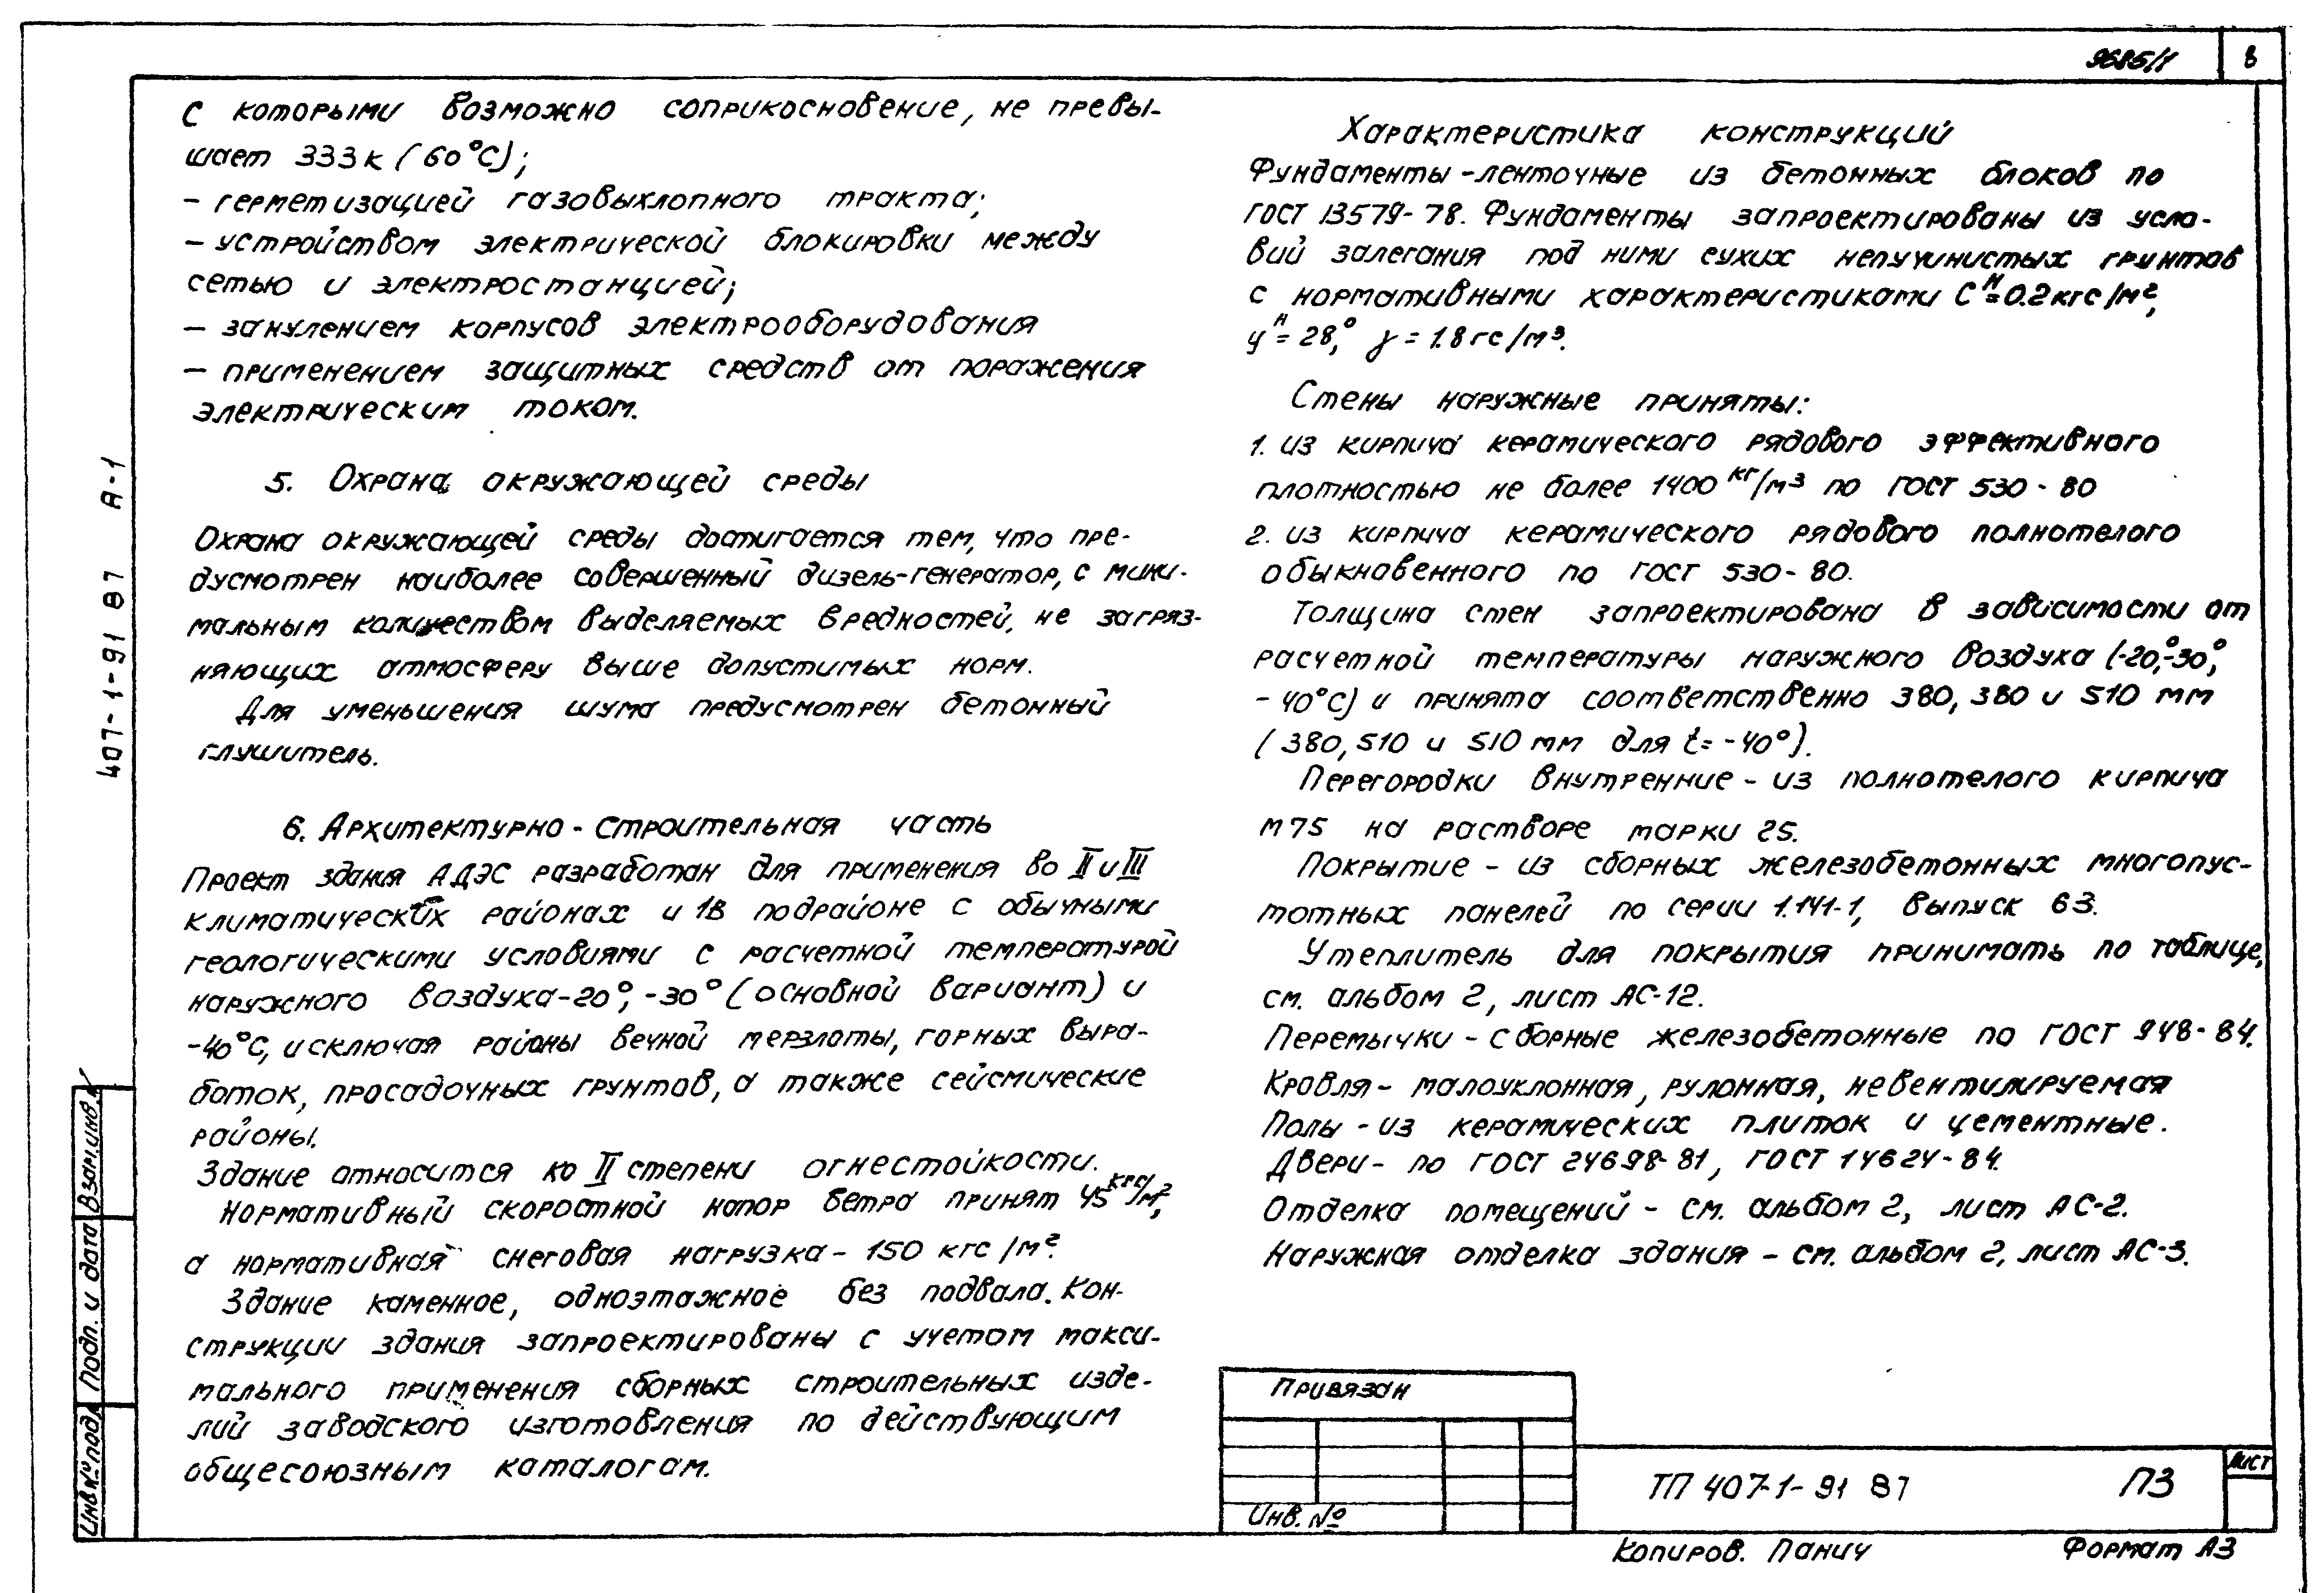 9685/1 8
с которыми возможно соприкосновение, не превы-
шает 333к (60°С);
- герметизацией газовыхлопного тракта;
- устройством электрической блокировки между
сетью и электростанцией;
- занулением корпусов электрооборудования
- применением защитных средств от поражения
электрическим током.
5. Охрана окружающей среды
Охрана окружающей среды достигается тем, что пре-
дусмотрен наиболее совершенный дизель-генератор, с мини-
мальным количеством выделяемых вредностей, не загряз-
няющих атмосферу выше допустимых норм.
Для уменьшения шума предусмотрен бетонный
глушитель.
6. Архитектурно-строительная часть
Проект здания АДЭС разработан для применения во II и III
климатических районах и 1В подрайоне с обычными
геологическими условиями с расчетной температурой
наружного воздуха -20°, -30° (основной вариант) и
-40°С, исключая районы вечной мерзлоты, горных выра-
боток, просадочных грунтов, а также сейсмические
районы.
Здание относится ко II степени огнестойкости.
Нормативный скоростной напор ветра принят 45 кгс/м²,
а нормативная снеговая нагрузка - 150 кгс/м².
Здание каменное, одноэтажное без подвала. Кон-
струкции здания запроектированы с учетом макси-
мального применения сборных строительных изде-
лий заводского изготовления по действующим
общесоюзным каталогам.
Характеристика конструкций
Фундаменты - ленточные из бетонных блоков по
ГОСТ 13579-78. Фундаменты запроектированы из усло-
вий залегания под ними сухих непучинистых грунтов
с нормативными характеристиками Сᴴ=0.2 кгс/м²,
φᴴ=28°, γ=1.8 гс/м³.
Стены наружные приняты:
1. из кирпича керамического рядового эффективного
плотностью не более 1400 кг/м³ по ГОСТ 530-80
2. из кирпича керамического рядового полнотелого
обыкновенного по ГОСТ 530-80.
Толщина стен запроектирована в зависимости от
расчетной температуры наружного воздуха (-20°,-30°,
-40°С) и принята соответственно 380, 380 и 510 мм
(380, 510 и 510 мм для t=-40°).
Перегородки внутренние - из полнотелого кирпича
М75 на растворе марки 25.
Покрытие - из сборных железобетонных многопус-
тотных панелей по серии 1.141-1, выпуск 63.
Утеплитель для покрытия принимать по таблице,
см. альбом 2, лист АС-12.
Перемычки - сборные железобетонные по ГОСТ 948-84.
Кровля - малоуклонная, рулонная, невентилируемая
Полы - из керамических плиток и цементные.
Двери - по ГОСТ 24698-81, ГОСТ 14624-84.
Отделка помещений - см. альбом 2, лист АС-2.
Наружная отделка здания - см. альбом 2, лист АС-3.
407-1-91 87 А-1
Взам.инв.
Подп. и дата
Инв.№ подл
Привязан
Инв. №
ТП 407-1-91 87 ПЗ
Лист
Копиров. Панич Формат А3